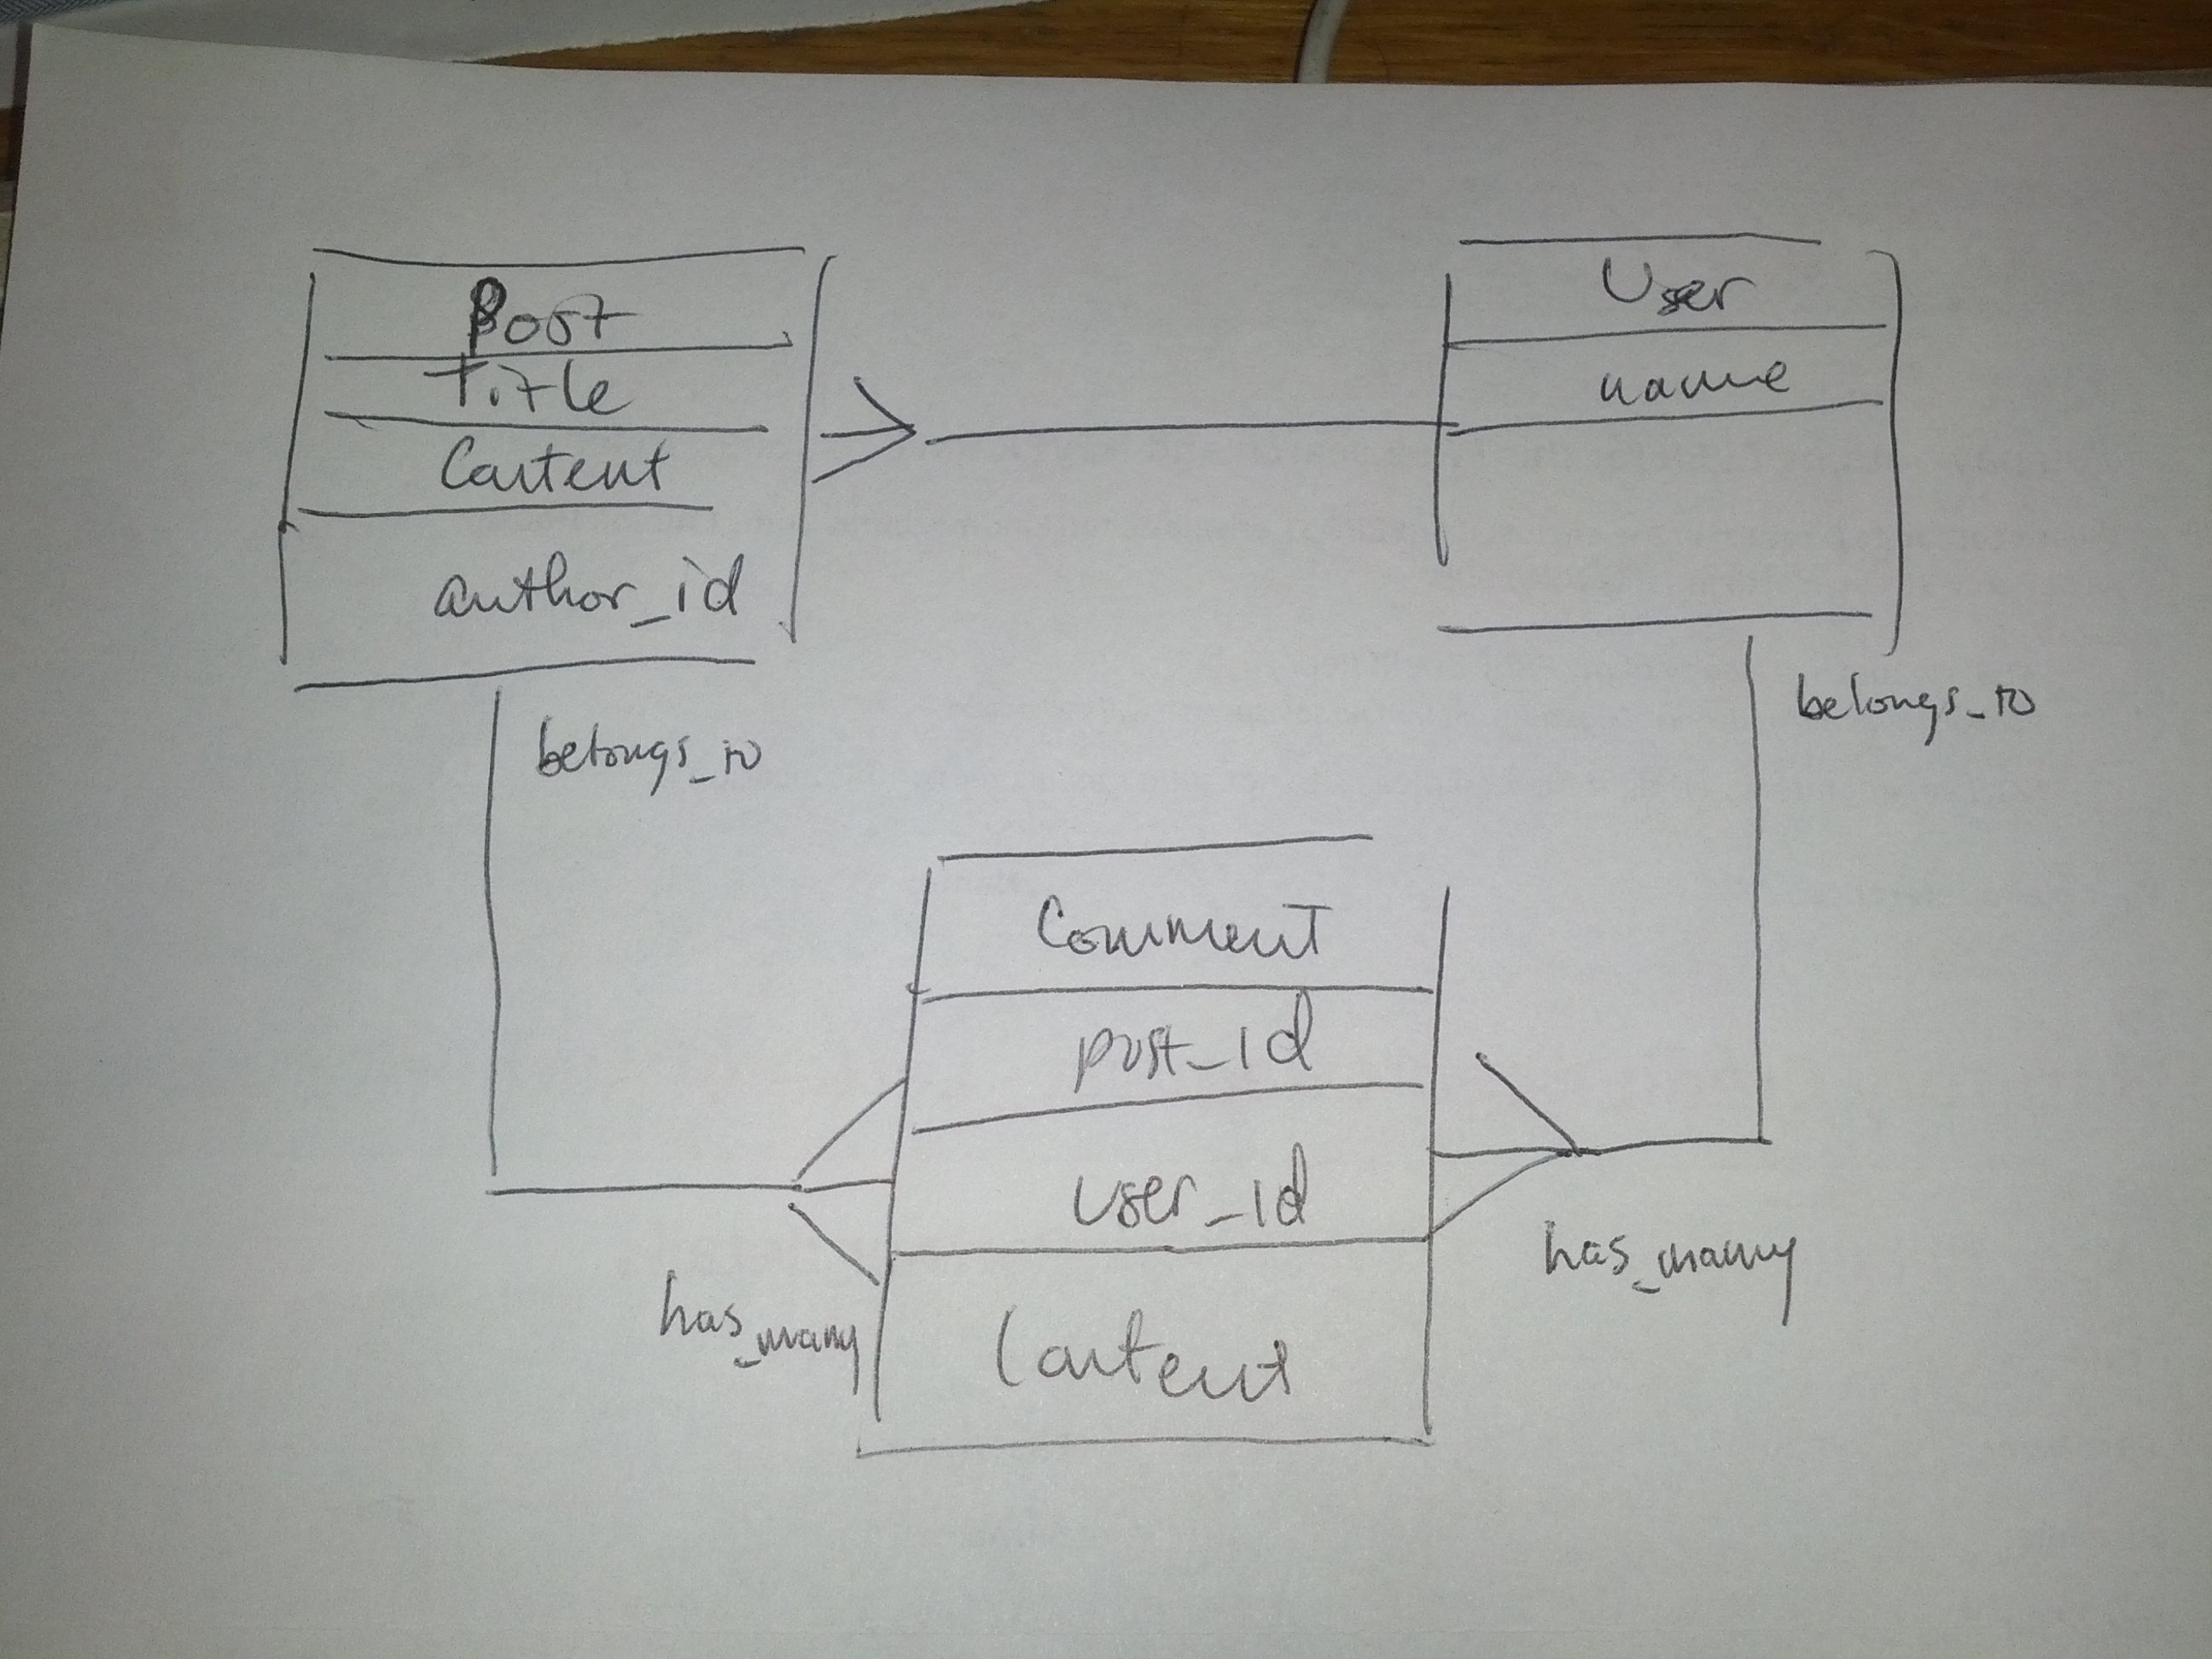 Post
Title
Content
author_id
User
name
belongs_to
belongs_to
Comment
post_id
user_id
Content
has_many
has_many